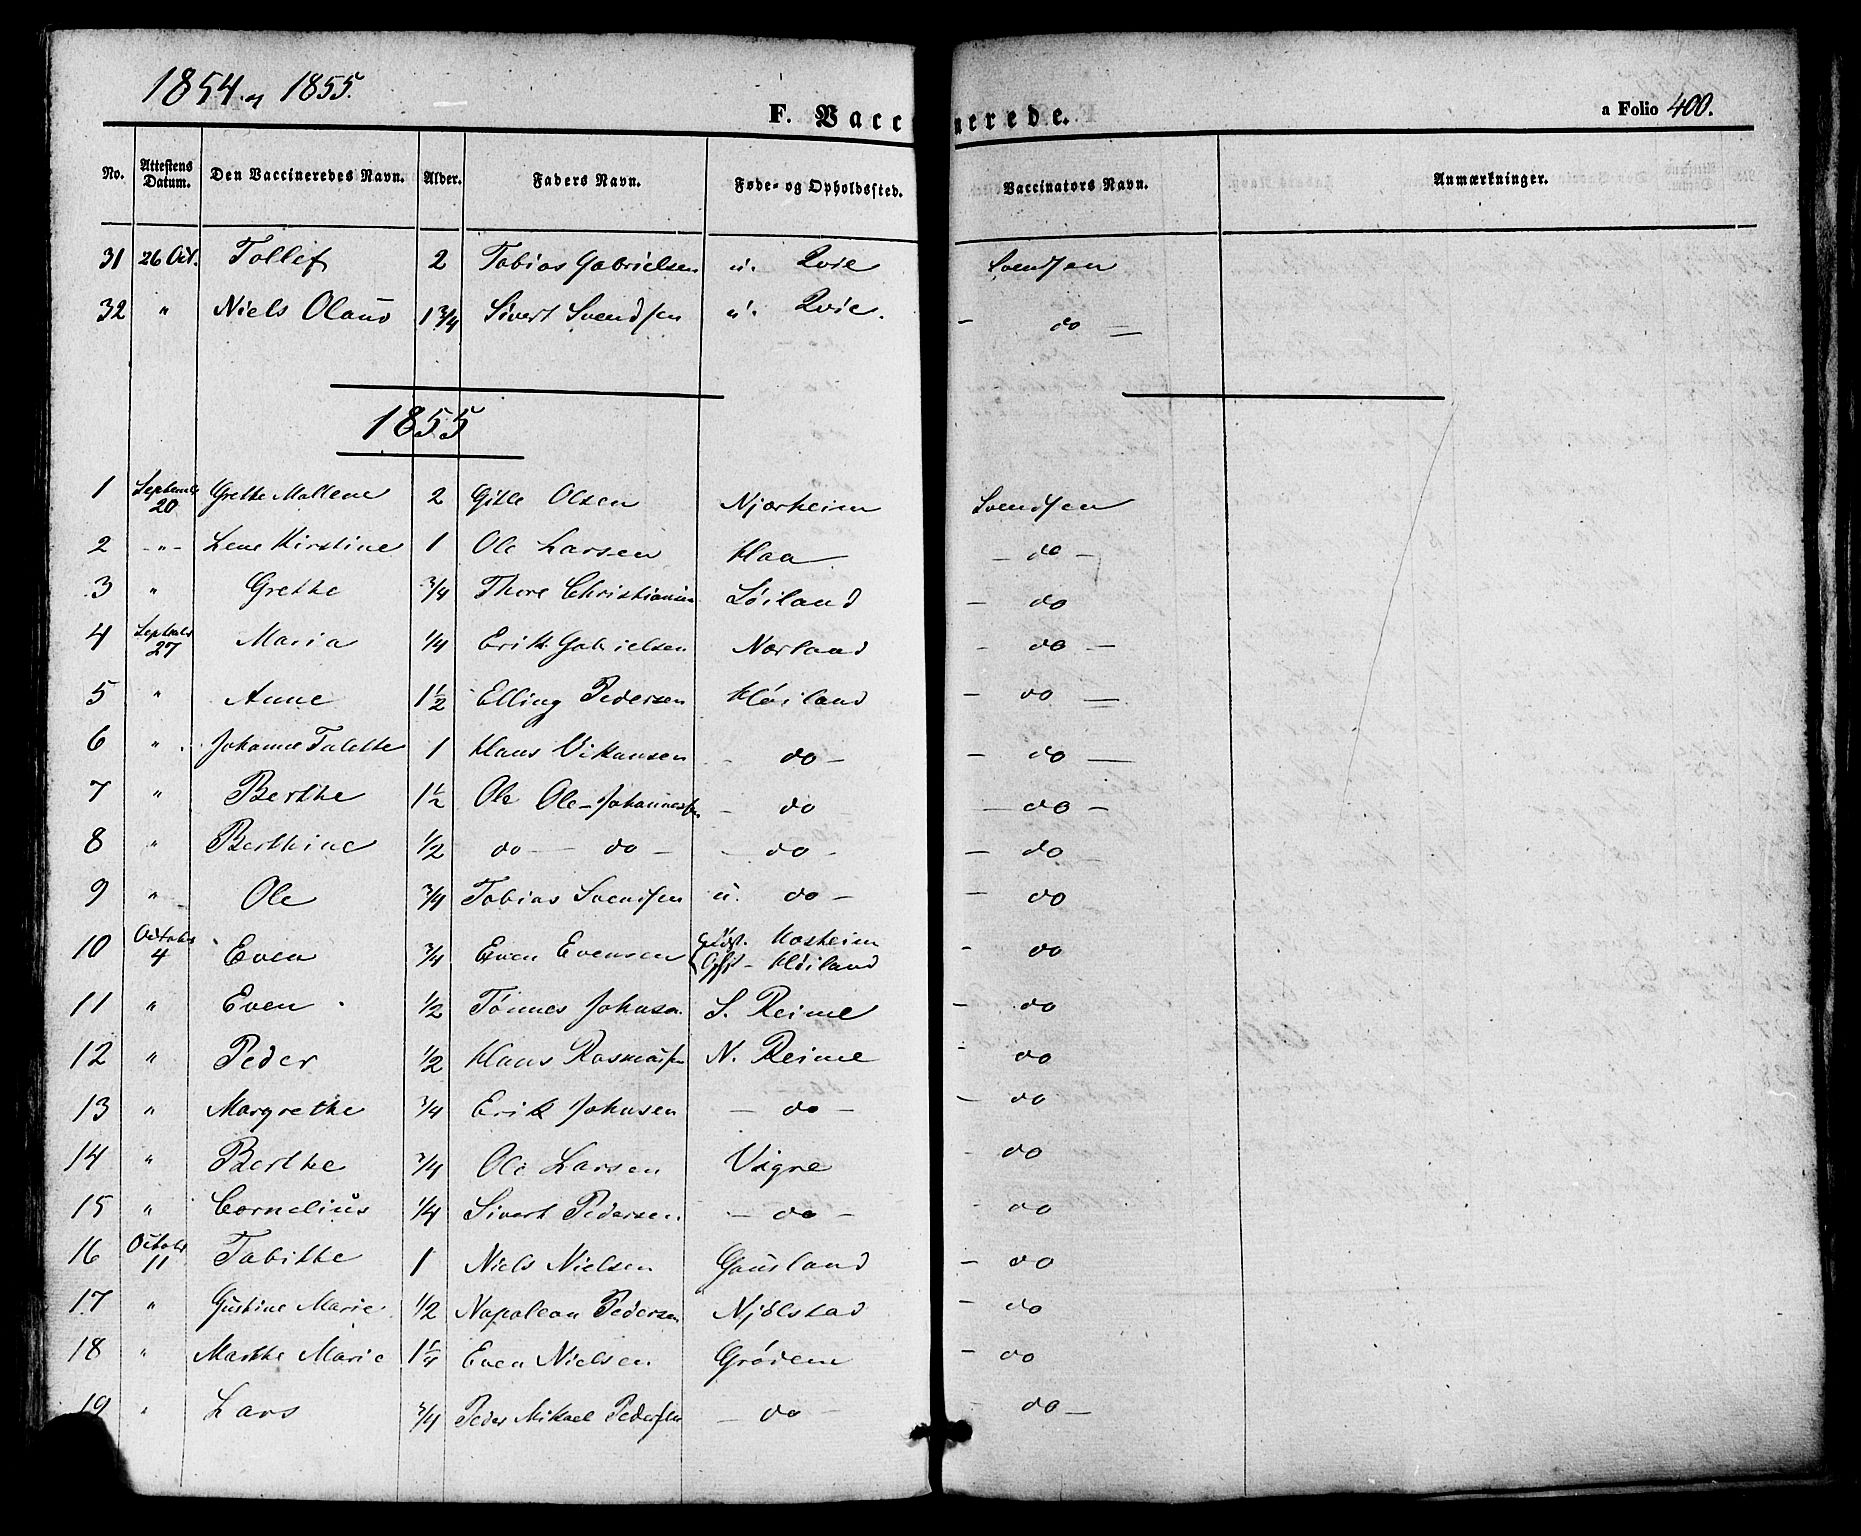 1854 og 1855.
F. Vaccinerede.
a Folio 400.
No. Attestens Datum. Den Vaccineredes Navn. Alder. Faders Navn. Føde- og Opholdssted. Vaccinators Navn. Anmærkninger.
31 26 Oct. Tollef 2 Tobias Gabrielsen u. Qvie Svendsen
32 " Niels Olaus 1 3/4 Sivert Svendsen u. Qvie. - do -
1855
1 Septembr 20 Grethe Mallene 2 Gitle Olsen Njærheim Svendsen
2 -"- Lene Kirstine 1 Ole Larsen Haa - do -
3 " Grethe 3/4 Thore Christiansen Løiland - do
4 Septabr 27 Maria 1/4 Erik Gabrielsen Nærland - do -
5 " Anne 1 1/2 Elling Pedersen Høiland - do -
6 " Johanne Talette 1 Hans Vikansen - do - - do -
7 " Berthe 1 1/2 Ole Ole-Johannessen - do - do -
8 " Berthine 1/2 do - do - - do - - do -
9 " Ole 3/4 Tobias Svendsen u. do - - do
10 Octobr 4 Even 3/4 Even Evensen Fdst. Hosheim - do
Opst - Høiland
11 " Even 1/2 Tønnes Johnsen S. Reime - do
12 " Peder 1/2 Hans Rasmussen N. Reime - do
13 " Margrethe 3/4 Erik Johnsen - do - - do
14 " Berthe 3/4 Ole Larsen Vigre - do
15 " Cornelius 1/4 Sivert Pedersen. - do - - do
16 Octobr 11 Tabithe 1 Niels Nielsen Gausland - do
17 " Gustine Marie 1/2 Napoleon Pedersen Njølstad - do
18 " Marthe Marie 1 1/4 Even Nielsen Grødem - do
19 " Lars 3/4 Peder Mikael Pedersen - do - - do -